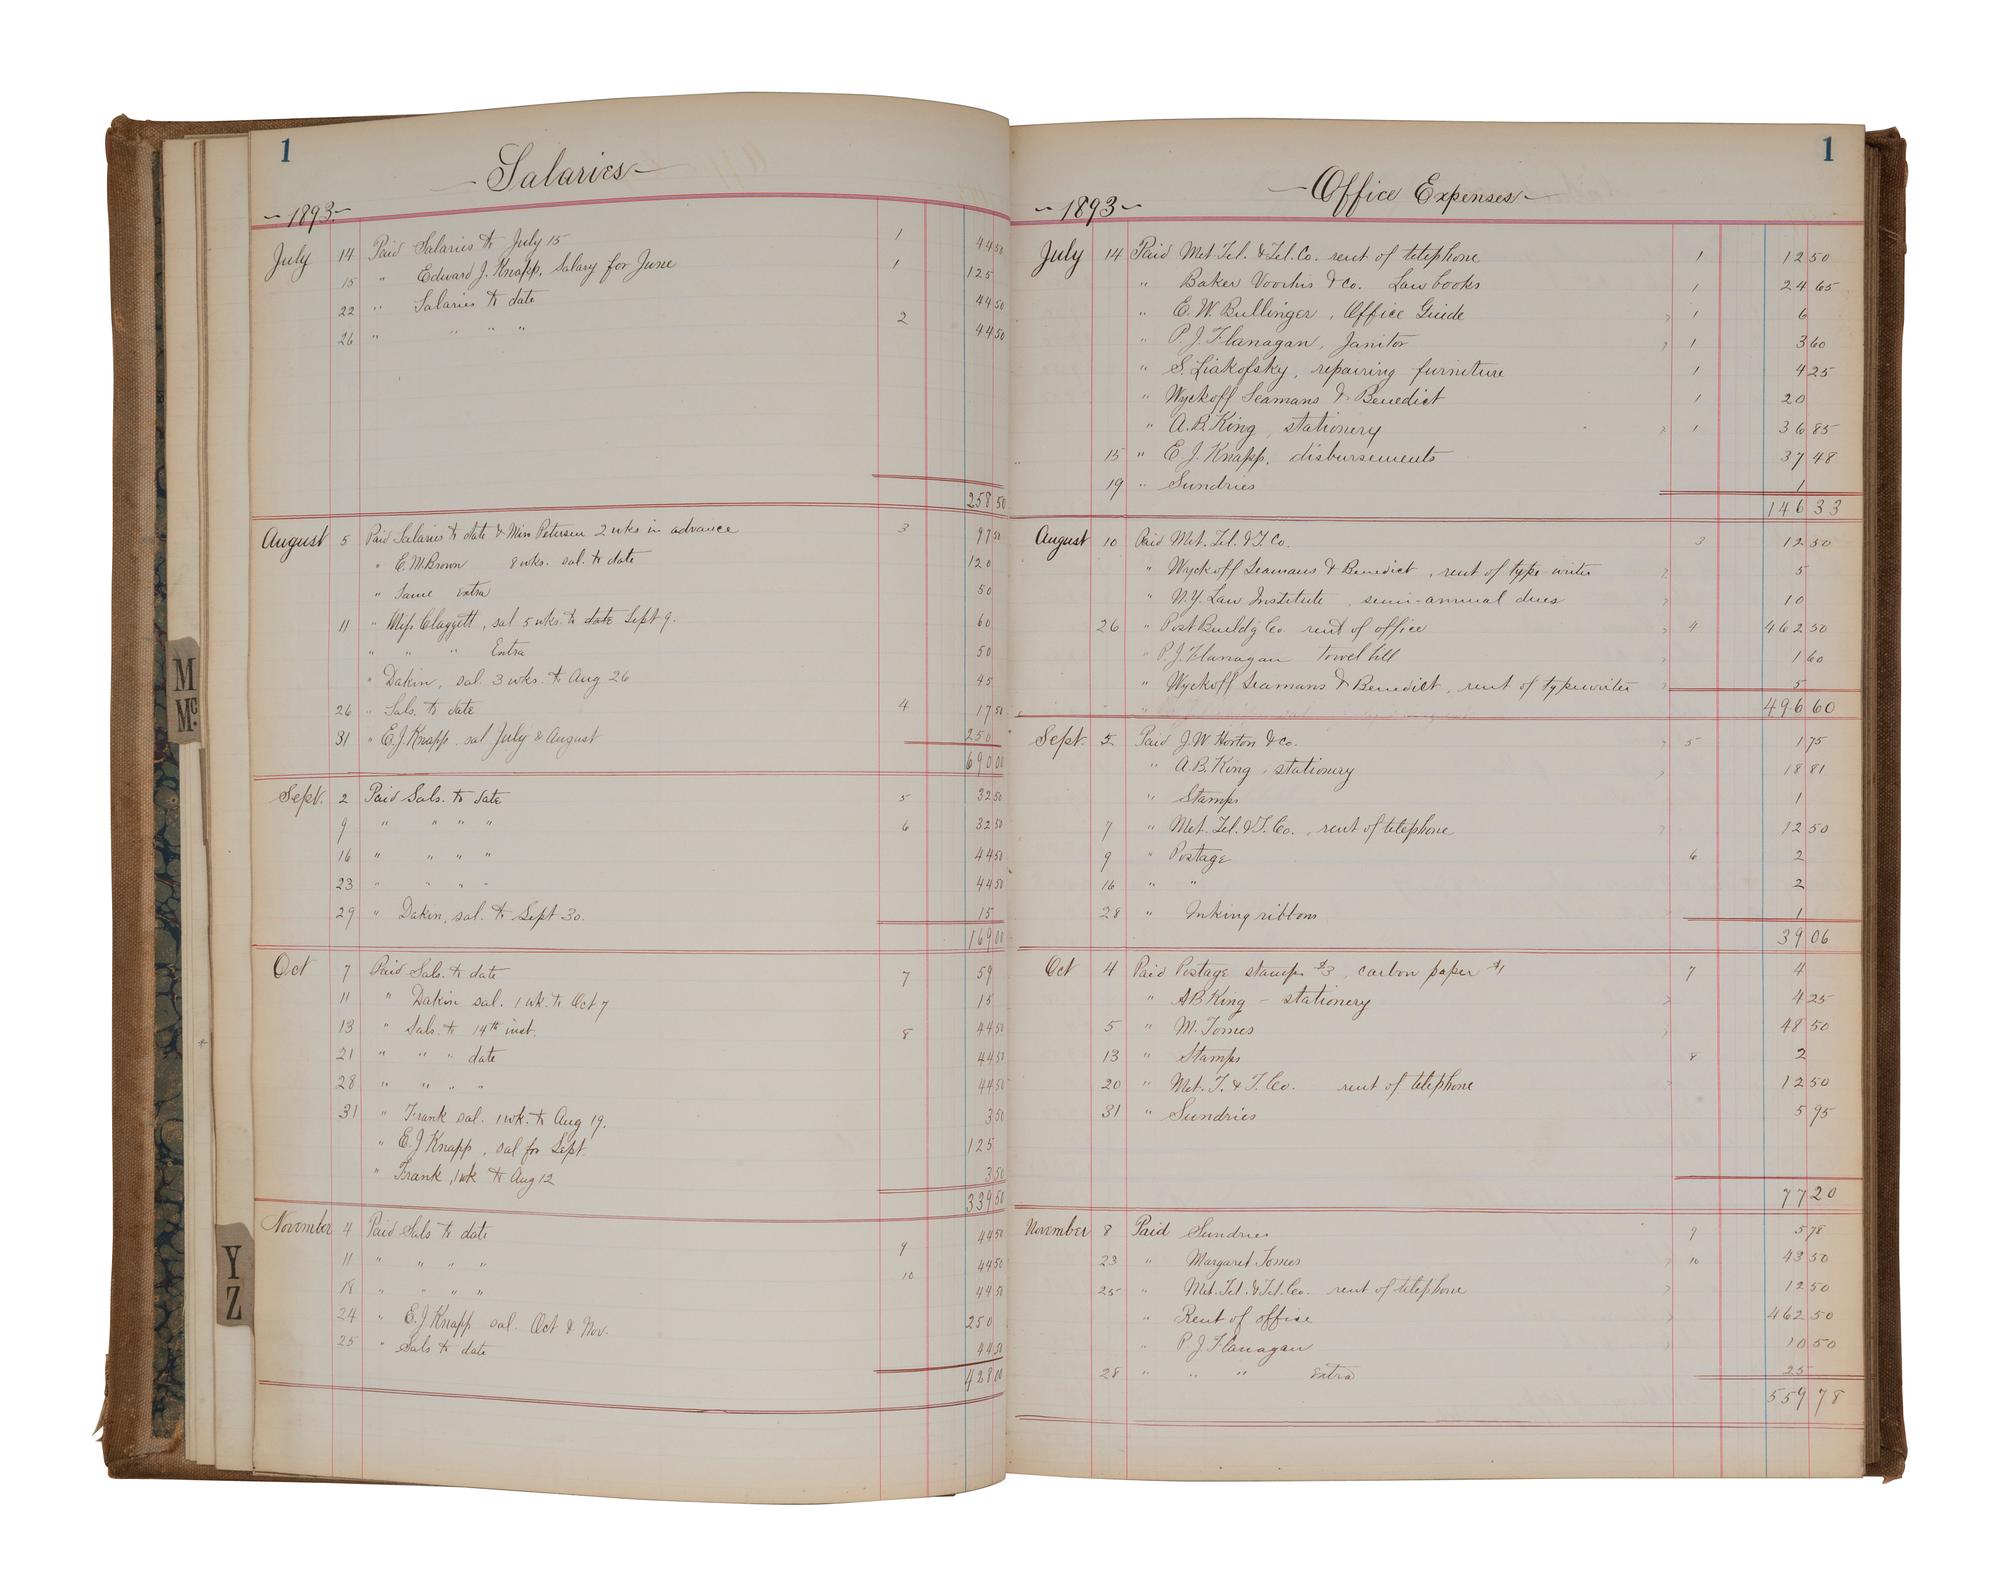 1
Salaries
1893
July 14 Paid Salaries to July 15 1 44 50
15 " Edward J. Knapp, Salary for June 1 125
22 " Salaries to date 44 50
26 " " " " 2 44 50
258 50
August 5 Paid Salaries to date & Miss Petersen 2 wks in advance 3 97 50
" E. M. Brown 8 wks. sal. to date 120
" Same extra 50
11 " Miss Claggett, sal 5 wks. to date Sept 9. 60
" " " Extra 50
" Dakin, sal. 3 wks. to Aug 26 45
26 " Sals. to date 4 17 50
31 " E. J. Knapp. sal July & August 250
690 00
Sept. 2 Paid Sals. to date 5 32 50
9 " " " " 6 32 50
16 " " " " 44 50
23 " " " " 44 50
29 " Dakin, sal. to Sept 30. 15
169 00
Oct 7 Paid Sals. to date 7 59
11 " Dakin sal. 1 wk. to Oct 7 15
13 " Sals. to 14th inst. 8 44 50
21 " " " date 44 50
28 " " " " 44 50
31 " Frank sal. 1 wk. to Aug 19. 3 50
" E. J. Knapp, sal for Sept. 125
" Frank, 1 wk to Aug 12 3 50
339 50
November 4 Paid Sals to date 44 50
11 " " " " 9 44 50
18 " " " " 10 44 50
24 " E. J. Knapp sal. Oct & Nov. 250
25 " Sals to date 44 50
428 00
M
Mc.
Y
Z
1
Office Expenses
1893
July 14 Paid Met. Tel. & Tel. Co. rent of telephone 1 12 50
" Baker Voorhis & Co. Law books 1 24 65
" E. W. Bullinger, Office Guide 1 6
" P. J. Flanagan, Janitor 1 3 60
" S. Liakofsky, repairing furniture 1 4 25
" Wyckoff Seamans & Benedict 1 20
" A. B. King, stationery 1 36 85
15 " E. J. Knapp, disbursements 37 48
19 " Sundries 1
146 33
August 10 Paid Met. Tel. & T. Co. 3 12 50
" Wyckoff Seamans & Benedict, rent of type-writer 5
" N.Y. Law Institute, semi-annual dues 10
26 " Post Build'g Co. rent of office 4 462 50
" P. J. Flanagan Towel bill 1 60
" Wyckoff Seamans & Benedict, rent of typewriter 5
" 496 60
Sept. 5 Paid J. W. Horton & Co. 5 1 75
" A. B. King, stationery 18 81
" Stamps 1
7 " Met. Tel. & T. Co., rent of telephone 12 50
9 " Postage 6 2
16 " " 2
28 " Inking ribbons 1
39 06
Oct 4 Paid Postage stamps $3, carbon paper $1 7 4
" A B King - stationery 4 25
5 " M. Tomes 48 50
13 " Stamps 8 2
20 " Met. T. & T. Co. rent of telephone 12 50
31 " Sundries 5 95
77 20
November 8 Paid Sundries 9 5 78
23 " Margaret Tomes 10 43 50
25 " Met. Tel. & Tel. Co. rent of telephone 12 50
" Rent of office 462 50
" P. J. Flanagan 10 50
28 " " " extra 25
559 78